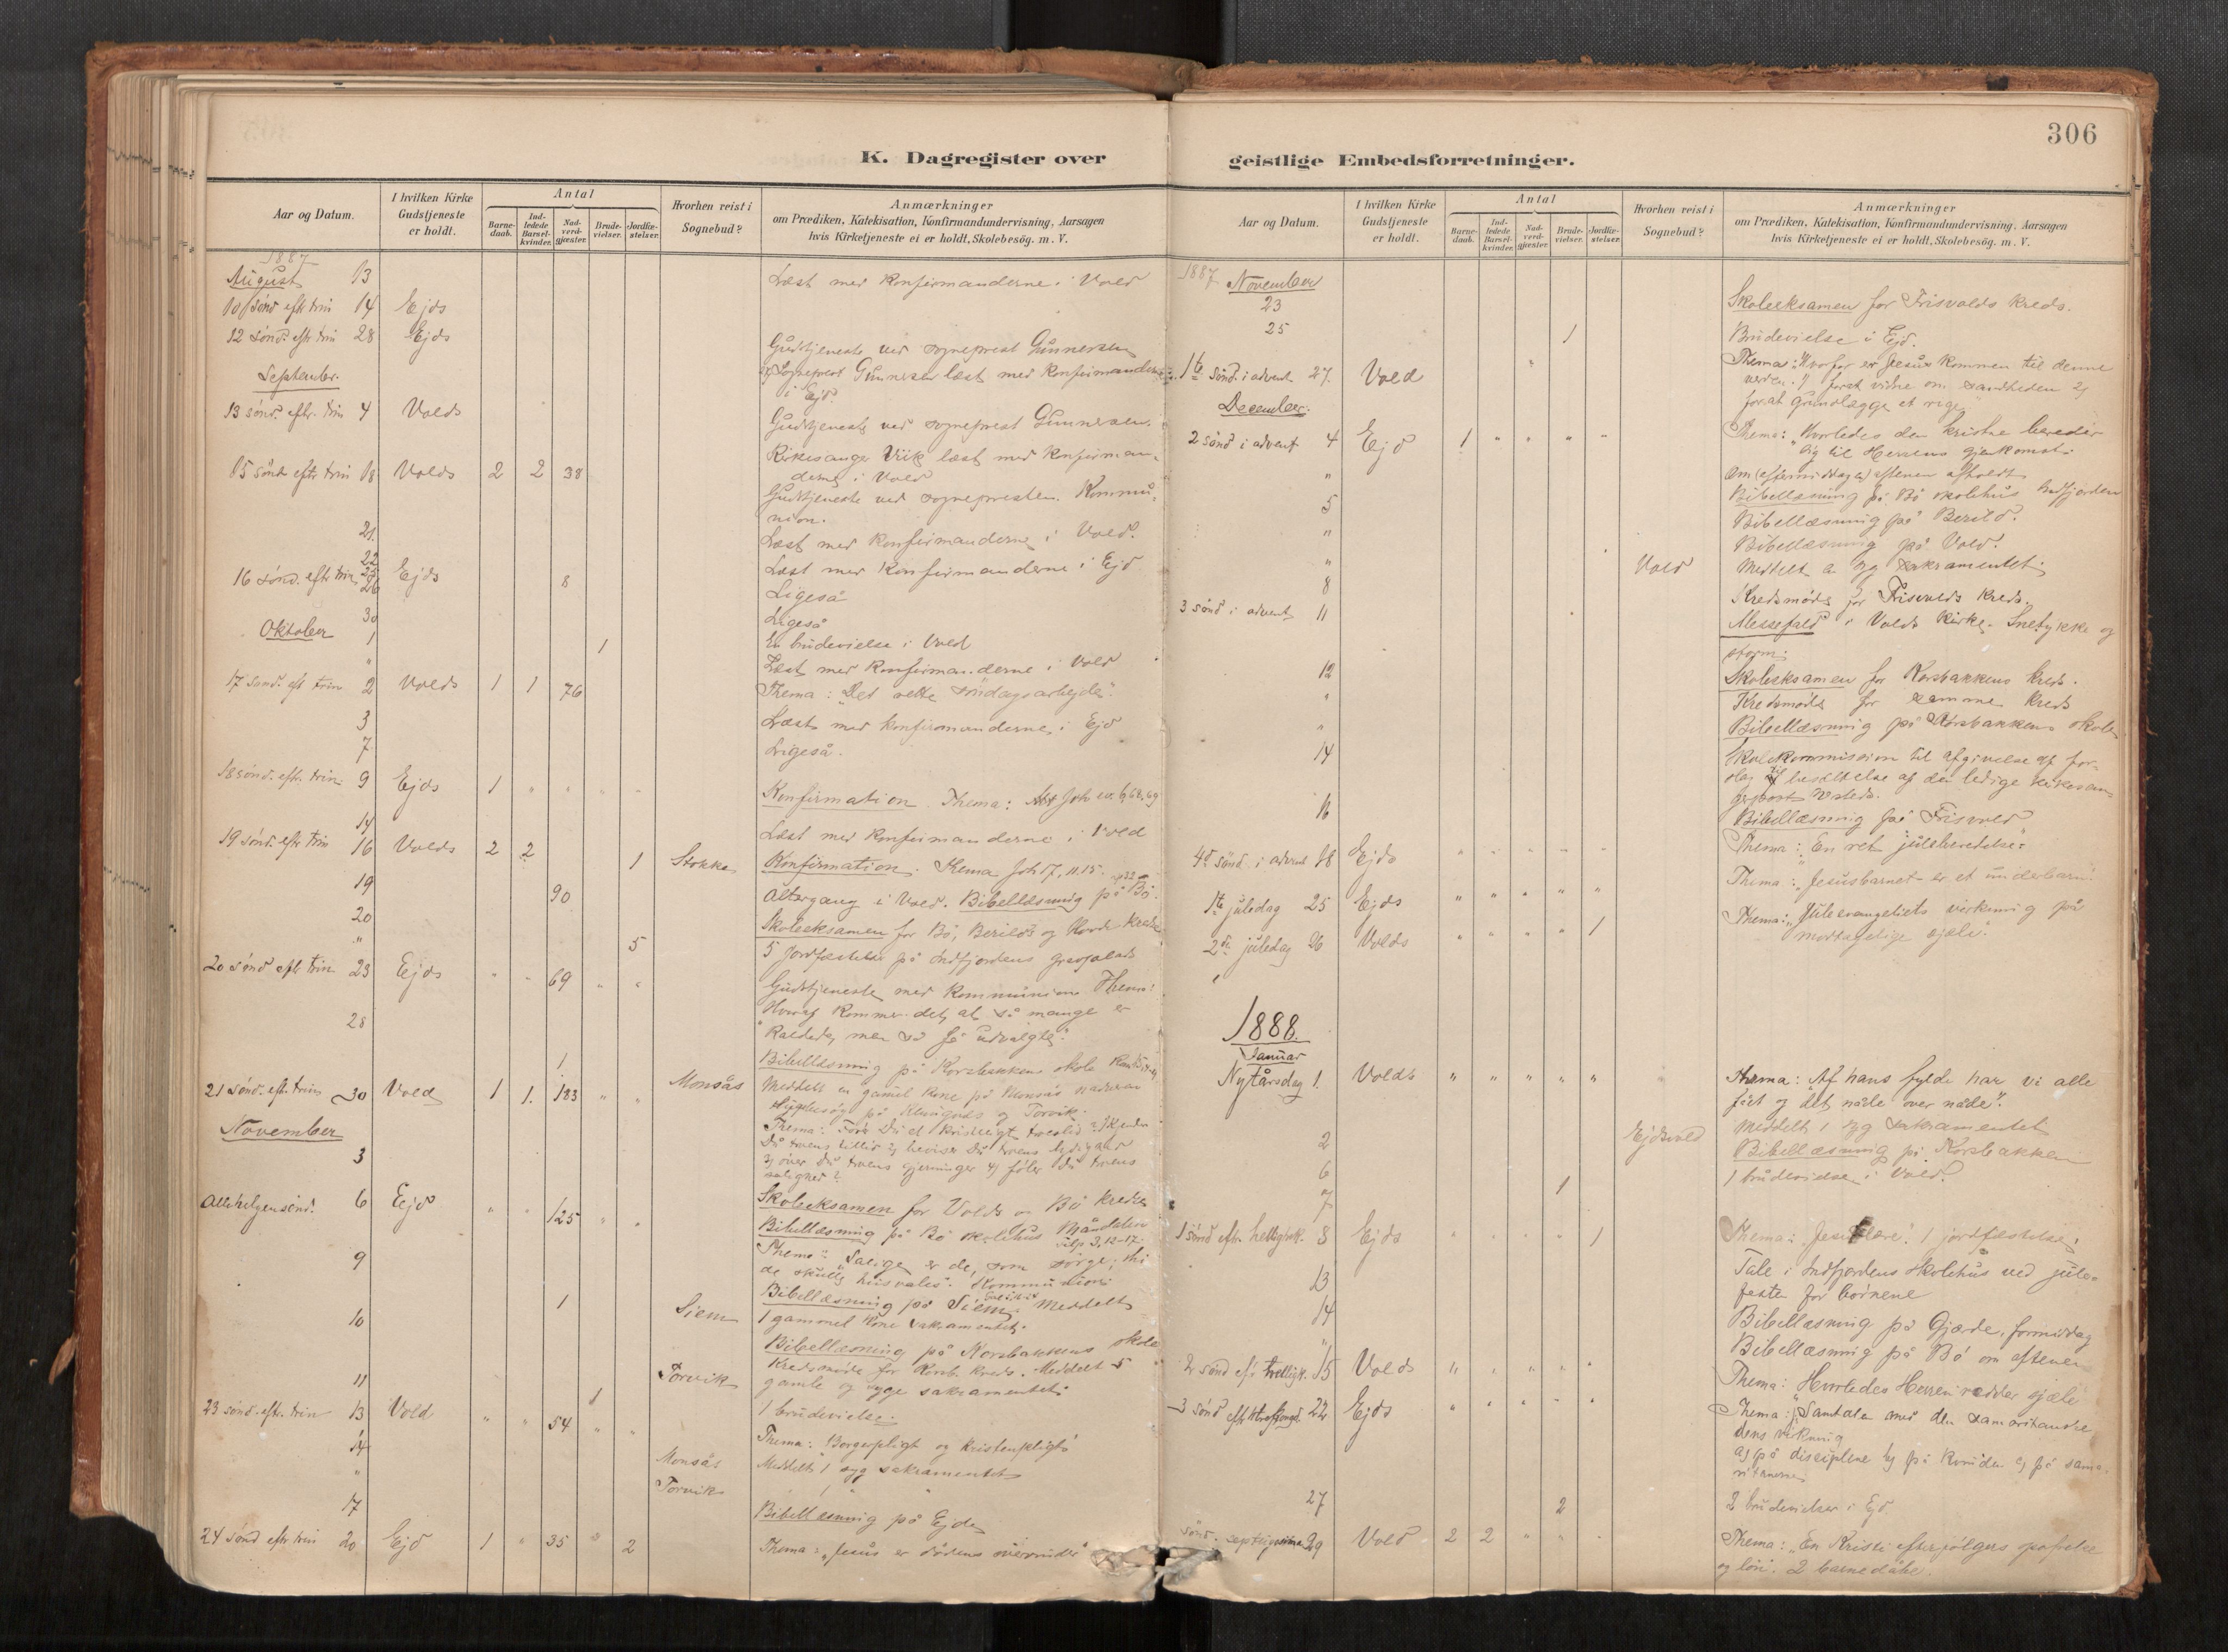 306
K. Dagregister over geistlige Embedsforretninger.
Aar og Datum.
I hvilken Kirke Gudstjeneste er holdt.
Antal
Barnedaab.
Indledede Barselkvinder.
Nadverdgjæster.
Brudevielser.
Jordfæstelser.
Hvorhen reist i Sognebud?
Anmærkninger
om Prædiken, Katekisation, Konfirmandundervisning, Aarsagen
hvis Kirketjeneste ei er holdt, Skolebesøg. m. V.
1887
August 13 Læst med konfirmanderne i Vold
10 sønd eftr trin 14 Ejds
12 sønd. eftr trin 28 Ejds
Gudstjeneste ved sogneprest Gunnersen
September. Sogneprest Gunnersen læst med konfirmanderne
i Ejd.
13 sønd. eftr. trin 4 Volds
Gudstjeneste ved sogneprest Gunnersen.
Kirkesanger Viik læst med konfirman-
derne i Vold
15 sønd eftr trin 18 Volds 2 2 38
Gudstjeneste ved sognepresten. Kommu-
nion.
21. Læst med konfirmanderne i Vold.
22 Læst med konfirmanderne i Ejd
16 sønd. eftr trin 25 Ejds 8
26 Ligeså
30 Ligeså
Oktober 1 1 En brudevielse i Vold
" Læst med konfirmanderne i Vold
17 sønd. eft trin 2 Volds 1 1 76 Thema: "Det rette søndagsarbejde".
3 Læst med konfirmanderne i Ejd
7 Ligeså.
18 sønd. eftr. trin 9 Ejds 1 " " " " Konfirmation. Thema: Joh ev. 6, 68. 69
14 Læst med konfirmanderne i Vold
19 sønd. eftr trin 16 Volds 2 2 1 Stokke Konfirmation. Thema Joh 17, 11. 15.
19 90 Altergang i Vold. Bibellæsning på Bø.
20 Skoleeksamen for Bø, Berilds og Hovde kredse
" 5 5 Jordfæstelser på Indfjordens gravplads
20 sønd eftr trin 23 Ejds " " 69 " " Gudstjeneste med kommunion Thema:
Hvoraf kommer det, at så mange er
kaldede, men så få udvalgte".
28 Bibellæsning på Korsbakkens skole
1 Monsås Meddelt en gammel kone på Monsås nadveren
21 sønd. eftr. trin 30 Vold 1 1. 183 " "
November
3 Skoleeksamen for Volds og Bø kredse
Allehelgensønd. 6 Ejd " " 125 " "
Bibellæsning på Bø skolehus
9 Thema: "Salige er de, som sørge; thi
de skulle husvales". Kommunion
10 1 Siem Bibellæsning på Siem. Meddelt
1 gammel kone sakramentet.
Bibellæsning på Korsbakkens skole
11 Torvik Kredsmøde for Korsb. kreds. Meddelt 5
gamle og syge sakramentet.
1 1 brudevielse.
23 sønd. eftr. trin 13 Vold " " 54 " " Thema: "Borgerpligt og kristenpligt"
14 Monsås Meddelt 1 syg sakramentet
" Torvik 1 " "
17 Bibellæsning på Ejde
24 sønd eftr trin 20 Ejd 1 " 35 " 2 Thema: "Jesus er dødens overvinder"
Aar og Datum.
I hvilken Kirke Gudstjeneste er holdt.
Antal
Barnedaab.
Indledede Barselkvinder.
Nadverdgjæster.
Brudevielser.
Jordfæstelser.
Hvorhen reist i Sognebud?
Anmærkninger
om Prædiken, Katekisation, Konfirmandundervisning, Aarsagen
hvis Kirketjeneste ei er holdt, Skolebesøg. m. V.
1887 November
23 Skoleeksamen for Frisvolds kreds.
25 1 Brudevielse i Ejd.
1te sønd. i advent 27. Vold Thema: "Hvorfor er Jesus kommen til denne
verden. 1) forat vidne om sandheden 2)
forat grundlægge et rige"
December.
2 sønd i advent 4 Ejd 1 " " " " Thema: "Hvorledes den kristne bereder
sig til Herrens gjenkomst.
" Om (eftermiddagen) aftenen afholdt
Bibellæsning på Bø skolehus Indfjorden
5 Bibellæsning på Berild.
" Bibellæsning på Vold.
" Vold Meddelt en syg sakramentet.
8 Kredsmøde for Frisvolds kreds.
3 sønd i advent 11 Messefald i Volds kirke. Snetykke og
storm.
12 Skoleeksamen for Korsbakkens kreds.
" Kredsmøde for samme kreds
" Bibellæsning på Korsbakkens skole
14 Skolekommission til afgivelse af for-
slag til besættelse af den ledige kirkesan-
gerpost i Volds.
16 Bibellæsning på Frisvold
4de sønd. i advent 18 Ejds " " " " " Thema: "En ret juleberedelse."
1te juledag 25 Ejds " " " " " Thema: "Jesusbarnet er et underbarn."
2den juledag 26 Volds " " " " 1 Thema: "Juleevangeliets virkning på
modtagelige sjæle".
1888.
Januar
Nytårsdag 1. Volds " " " " " Thema: "Af hans fylde har vi alle
fået og det nåde over nåde".
2 Ejdsvold Meddelt 1 syg sakramentet
6 Bibellæsning på Korsbakken
7 1 1 brudevielse i Vold.
1 sønd eftr. helligtrek. 8 Ejds " " " " 1 Thema: Jesu lære. 1 jordfæstelse.
13 Tale i Indfjordens skolehus ved jule-
festen for børnene
14 Bibellæsning på Gjærde, formiddag
" Bibellæsning på Bø om aftenen
2 sønd eft helligtr. 15 Volds " " " " " Thema: "Hvorledes Herren redder sjæle
3 sønd eft 22 Ejds " " " " " Thema: "Samtalen med den samaritanske
dens virkning
a) på disciplene b) på kvinden c) på sama-
ritanerne
27 2 2 brudevielser i Ejd.
sønd. septuagesima 29 Vold 2 2 " " " Thema: "En Kristi efterfølgers opofrelse
og løn". 2 barnedåbe.